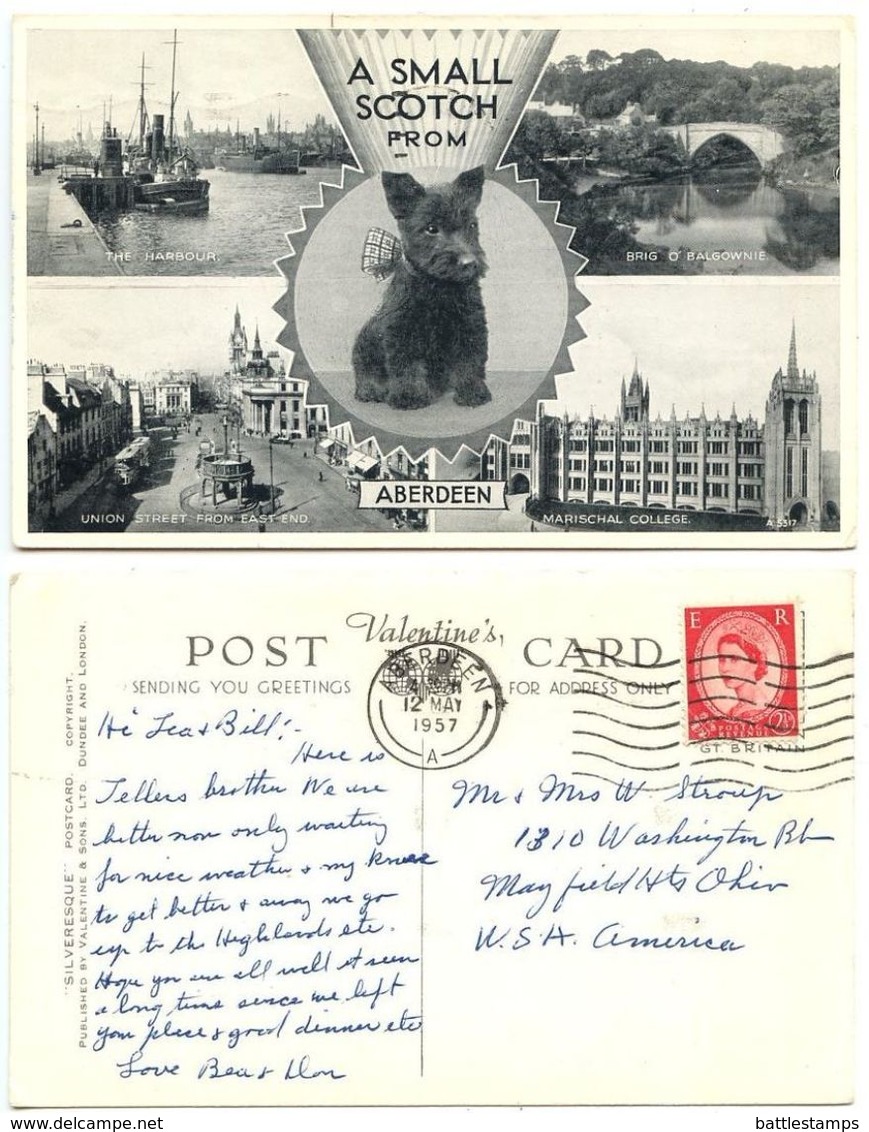 A SMALL
SCOTCH
FROM
THE HARBOUR.
BRIG O' BALGOWNIE.
UNION STREET FROM EAST END.
ABERDEEN
MARISCHAL COLLEGE.
A 5317
POST Valentine's, CARD
SENDING YOU GREETINGS
FOR ADDRESS ONLY
"SILVERESQUE" POSTCARD. COPYRIGHT.
PUBLISHED BY VALENTINE & SONS. LTD. DUNDEE AND LONDON.
ABERDEEN
12 MAY
1957
A
E R
POSTAGE
REVENUE
2½
GT. BRITAIN
Hi Lea & Bill:-
Here is
Tellers brother We are
better now only waiting
for nice weather & my knee
to get better & away we go
up to the Highlands etc.
Hope you are all well it seem
a long time since we left
your place & good dinner etc
Love Bea & Don
Mr & Mrs W. Stroup
1310 Washington
Mayfield Hts Ohio
U.S.A. America
www.delcampe.net
battlestamps